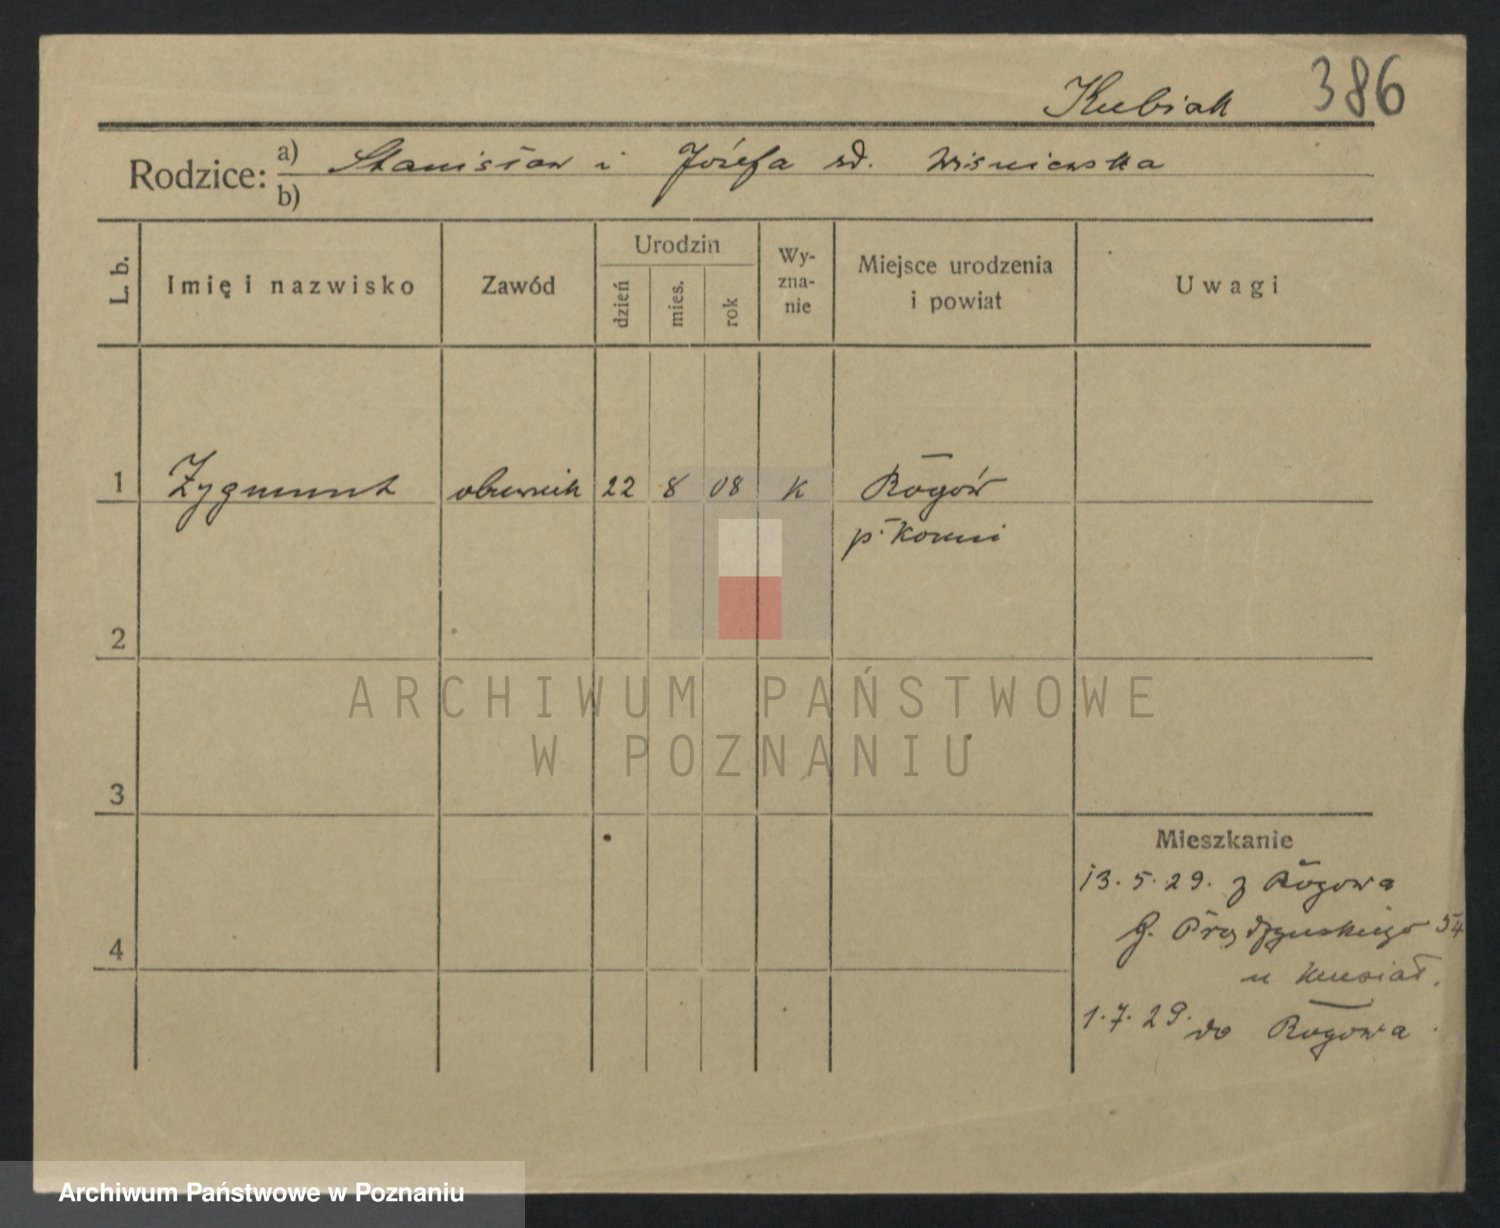 386
Kubiak
Rodzice: a) Stanisław i Józefa zd. Wiśniewska
b)
L. b.
Imię i nazwisko
Zawód
Urodzin
dzień
mies.
rok
Wy-
zna-
nie
Miejsce urodzenia
i powiat
Uwagi
1 Zygmunt obuwnik 22 8 08 K Rogów
p. Konin
2
3
4
Mieszkanie
13. 5. 29. z Rogowa
G. Prądzyńskiego 54
u
1. 7. 29. do Rogowa.
ARCHIWUM PAŃSTWOWE
W POZNANIU
Archiwum Państwowe w Poznaniu